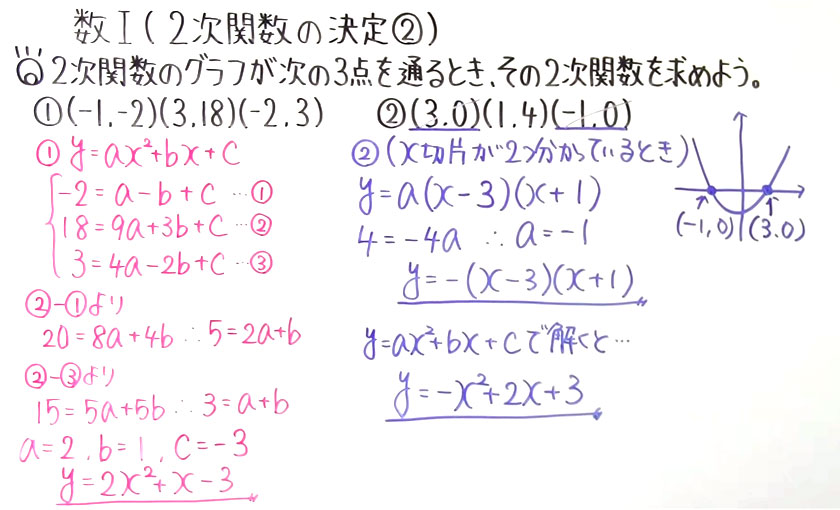 数Ⅰ(2次関数の決定②)
◎2次関数のグラフが次の3点を通るとき、その2次関数を求めよう。
①(-1,-2)(3,18)(-2,3)
②(3,0)(1,4)(-1,0)
① y=ax²+bx+c
-2=a-b+c…①
18=9a+3b+c…②
3=4a-2b+c…③
②-①より
20=8a+4b ∴5=2a+b
②-③より
15=5a+5b ∴3=a+b
a=2, b=1, c=-3
y=2x²+x-3
②(x切片が2つ分かっているとき)
y=a(x-3)(x+1)
4=-4a ∴a=-1
y=-(x-3)(x+1)
y=ax²+bx+cで解くと…
y=-x²+2x+3
(-1,0) (3,0)